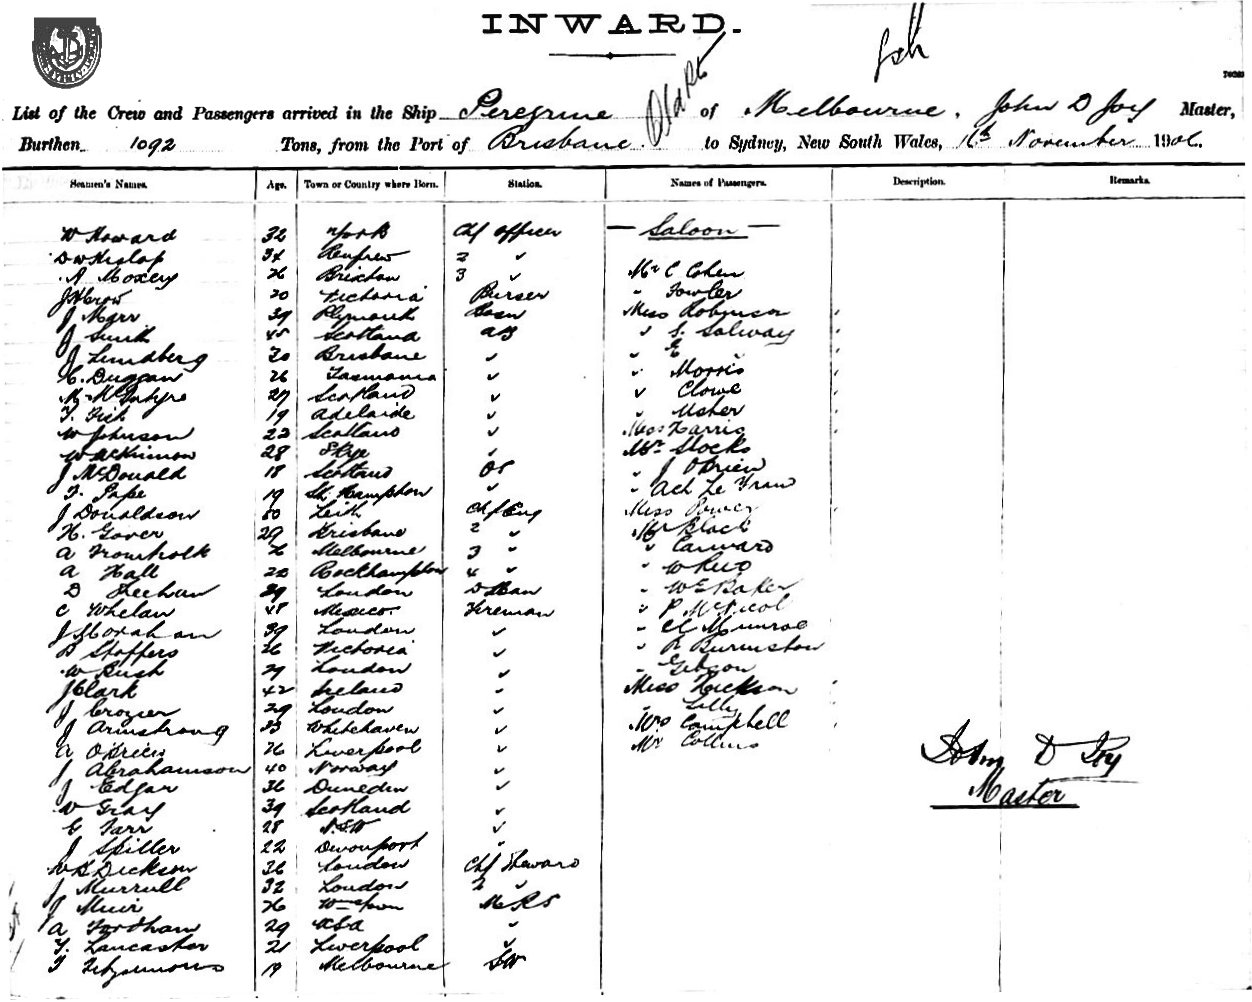 INWARD.
List of the Crew and Passengers arrived in the Ship Peregrine of Melbourne, John D Joy Master,
Burthen 1092 Tons, from the Port of Brisbane to Sydney, New South Wales, 16th November 1906.
Seamen's Names. Age. Town or Country where Born. Station. Names of Passengers. Description. Remarks.
W Howard 32 York Chf Officer — Saloon —
D W Hislop 34 Renfrew 2 "
A Moxey 26 Brixton 3 " Mr C Cohen
J H Crow 20 Victoria Purser " Fowler
J Marr 39 Plymouth Bosn Miss Robinson
J Smith 45 Scotland AB " S. Salway
J Lundberg 30 Brisbane " " E "
C. Duggan 26 Tasmania " " Morris
M McIntyre 27 Scotland " " Clowe
T. Fish 19 Adelaide " " Usher
W Johnson 22 Scotland " Miss Harris
W McKinnon 28 Skye " Mr Stocks
J McDonald 18 Scotland OS " J OBrien
F. Pape 19 St. Hampton " " Ach Le
J Donaldson 50 Leith Chf Eng Miss Power
H. Gover 29 Brisbane 2 " Mr Black
A Fromholk 26 Melbourne 3 " " Canward
A Hall 22 Rockhampton 4 " " W
D Sheehan 39 London D Man " Baker
C Whelan 48 Mexico Fireman " P McNicol
J Morahan 39 London " " Munroe
B Stoffers 26 Victoria " " Burniston
W Bush 29 London " " Gibson
J Clark 42 Ireland " Miss Dickson
J Crozier 29 London " " Lilly
J Armstrong 33 Whitehaven " Mrs Campbell
A OBrien 26 Liverpool " Mr Collins
J Abrahamson 40 Norway "
J Edgar 36 Dunedin "
W Gray 39 Scotland "
E Farr 28 NSW "
J Spiller 22 Devonport "
W S Dickson 36 London Chf Steward
J Murrull 32 London 2 "
J Muir 26
A Fordham 29 "
T. Lancaster 21 Liverpool "
T Fitzsimons 19 Melbourne SW
John D Joy
Master